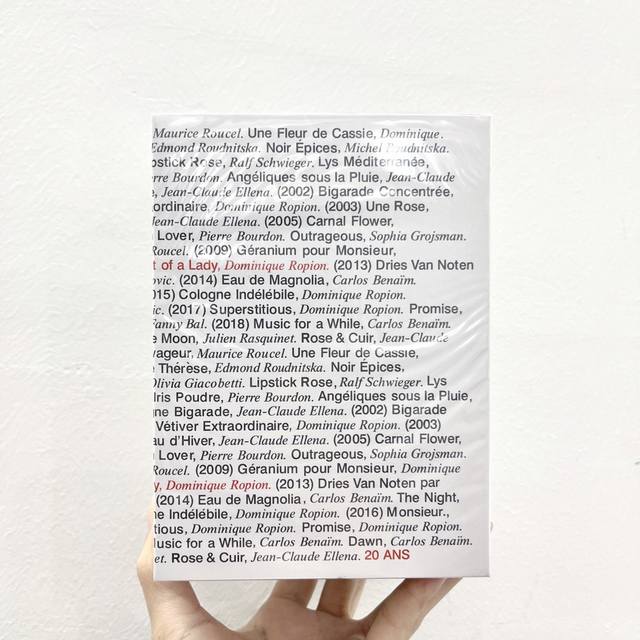 Maurice Roucel. Une Fleur de Cassie, Dominique.
Edmond Roudnitska. Noir Épices, Michel Roudnitska.
pstick Rose, Ralf Schwieger. Lys Méditerranée,
rre Bourdon. Angéliques sous la Pluie, Jean-Claude
, Jean-Claude Ellena. (2002) Bigarade Concentrée,
ordinaire, Dominique Ropion. (2003) Une Rose,
Jean-Claude Ellena. (2005) Carnal Flower,
Lover, Pierre Bourdon. Outrageous, Sophia Grojsman.
Roucel. (2009) Géranium pour Monsieur,
t of a Lady, Dominique Ropion. (2013) Dries Van Noten
ovic. (2014) Eau de Magnolia, Carlos Benaïm.
015) Cologne Indélébile, Dominique Ropion.
ic. (2017) Superstitious, Dominique Ropion. Promise,
Fanny Bal. (2018) Music for a While, Carlos Benaïm.
e Moon, Julien Rasquinet. Rose & Cuir, Jean-Claude
yageur, Maurice Roucel. Une Fleur de Cassie,
Thérèse, Edmond Roudnitska. Noir Épices,
Olivia Giacobetti. Lipstick Rose, Ralf Schwieger. Lys
Iris Poudre, Pierre Bourdon. Angéliques sous la Pluie,
gne Bigarade, Jean-Claude Ellena. (2002) Bigarade
Vétiver Extraordinaire, Dominique Ropion. (2003)
au d'Hiver, Jean-Claude Ellena. (2005) Carnal Flower,
Lover, Pierre Bourdon. Outrageous, Sophia Grojsman.
Roucel. (2009) Géranium pour Monsieur, Dominique
y, Dominique Ropion. (2013) Dries Van Noten par
(2014) Eau de Magnolia, Carlos Benaïm. The Night,
e Indélébile, Dominique Ropion. (2016) Monsieur.,
tious, Dominique Ropion. Promise, Dominique Ropion.
Music for a While, Carlos Benaïm. Dawn, Carlos Benaïm.
et. Rose & Cuir, Jean-Claude Ellena. 20 ANS